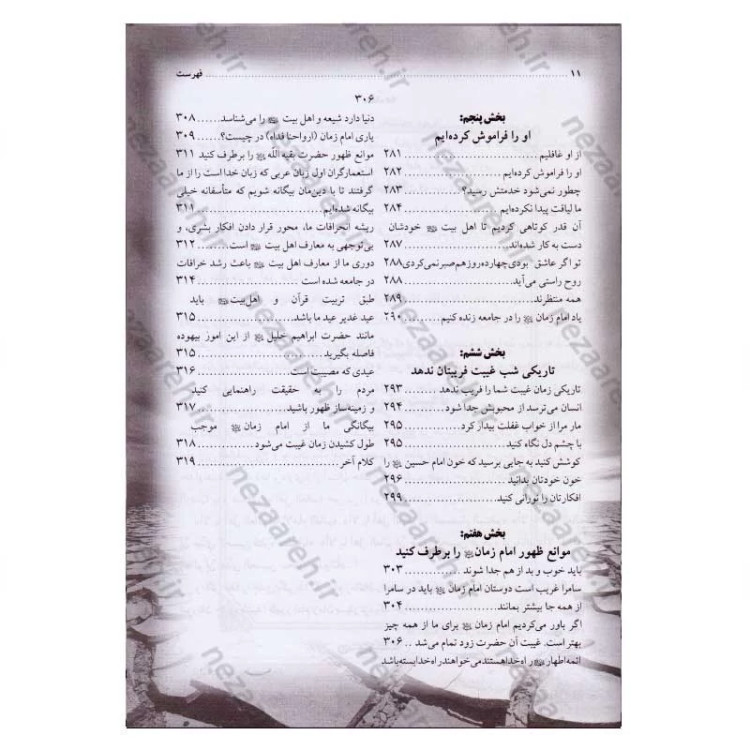 ۱۱ ........ فهرست
بخش پنجم:
او را فراموش کرده‌ایم
از او غافلیم ........ ۲۸۱
او را فراموش کرده‌ایم ........ ۲۸۲
چطور نمی‌شود خدمتش رسید؟ ........ ۲۸۳
ما لیاقت پیدا نکرده‌ایم ........ ۲۸۴
آن قدر کوتاهی کردیم تا اهل بیت خودشان
دست به کار شده‌اند ........ ۲۸۷
تو اگر عاشق بودی چهارده روز هم صبر نمی‌کردی ۲۸۸
روح راستی می‌آید ........ ۲۸۸
همه منتظرند ........ ۲۸۹
یاد امام زمان را در جامعه زنده کنیم ........ ۲۹۰
بخش ششم:
تاریکی شب غیبت فریبتان ندهد
تاریکی زمان غیبت شما را فریب ندهد ........ ۲۹۳
انسان می‌ترسد از محبوبش جدا شود ........ ۲۹۴
مار مرا از خواب غفلت بیدار کرد ........ ۲۹۵
با چشم دل نگاه کنید ........ ۲۹۵
کوشش کنید به جایی برسید که خون امام حسین را
خون خودتان بدانید ........ ۲۹۶
افکارتان را نورانی کنید ........ ۲۹۹
بخش هفتم:
موانع ظهور امام زمان را برطرف کنید
باید خوب و بد از هم جدا شوند ........ ۳۰۳
سامرا غریب است دوستان امام زمان باید در سامرا
از همه جا بیشتر بمانند ........ ۳۰۴
اگر باور می‌کردیم امام زمان برای ما از همه چیز
بهتر است. غیبت آن حضرت زود تمام می‌شد .. ۳۰۶
ائمه اطهار راه خدا هستند می‌خواهند راه خدا بسته باشد
۳۰۶
دنیا دارد شیعه و اهل بیت را می‌شناسد ........ ۳۰۸
یاری امام زمان (ارواحنا فداه) در چیست؟ ........ ۳۰۹
موانع ظهور حضرت بقیه الله را برطرف کنید ۳۱۱
استعمارگران اول زبان عربی که زبان خدا است را از ما
گرفتند تا با دین‌مان بیگانه شویم که متأسفانه خیلی
بیگانه شده‌ایم ........ ۳۱۱
ریشه انحرافات ما، محور قرار دادن افکار بشری، و
بی‌توجهی به معارف اهل بیت است ........ ۳۱۲
دوری ما از معارف اهل بیت باعث رشد خرافات
در جامعه شده است ........ ۳۱۴
طبق تربیت قرآن و اهل‌بیت باید
عید غدیر عید ما باشد ........ ۳۱۵
مانند حضرت ابراهیم خلیل از این امور بیهوده
فاصله بگیرید ........ ۳۱۵
عیدی که مصیبت است ........ ۳۱۶
مردم را به حقیقت راهنمایی کنید
و زمینه‌ساز ظهور باشید ........ ۳۱۷
بیگانگی ما از امام زمان موجب
طول کشیدن زمان غیبت می‌شود ........ ۳۱۸
کلام آخر ........ ۳۱۹
nezaareh.ir